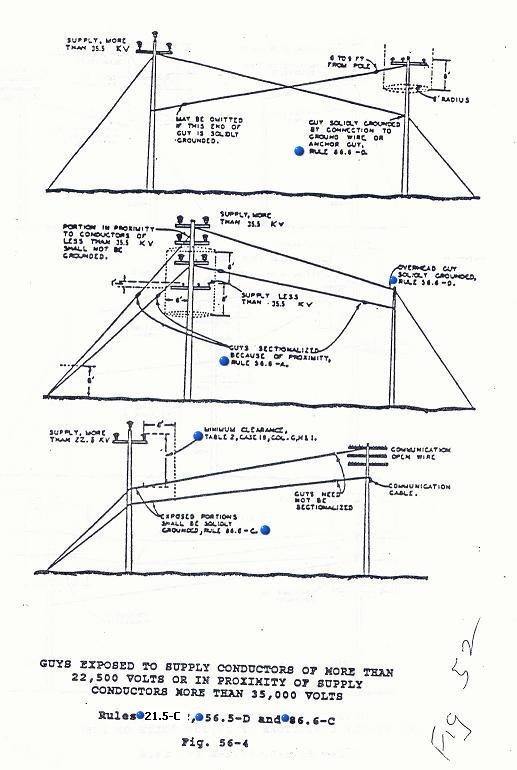 SUPPLY, MORE
THAN 35.5 KV
6 TO 9 FT.
FROM POLE
6'
6' RADIUS
MAY BE OMITTED
IF THIS END OF
GUY IS SOLIDLY
GROUNDED.
GUY SOLIDLY GROUNDED
BY CONNECTION TO
GROUND WIRE OR
ANCHOR GUY,
RULE 86.6-D.
PORTION IN PROXIMITY
TO CONDUCTORS OF
LESS THAN 35.5 KV
SHALL NOT BE
GROUNDED.
SUPPLY, MORE
THAN 35.5 KV
6'
6'
6'
SUPPLY LESS
THAN 35.5 KV
OVERHEAD GUY
SOLIDLY GROUNDED,
RULE 56.6-D.
GUYS SECTIONALIZED
BECAUSE OF PROXIMITY,
RULE 56.6-A.
8'
SUPPLY, MORE
THAN 22.5 KV
6'
MINIMUM CLEARANCE,
TABLE 2, CASE 18, COL. G, H & I.
COMMUNICATION
OPEN WIRE
GUYS NEED
NOT BE
SECTIONALIZED
COMMUNICATION
CABLE.
EXPOSED PORTIONS
SHALL BE SOLIDLY
GROUNDED, RULE 86.6-C.
GUYS EXPOSED TO SUPPLY CONDUCTORS OF MORE THAN
22,500 VOLTS OR IN PROXIMITY OF SUPPLY
CONDUCTORS MORE THAN 35,000 VOLTS
Rules 21.5-C, 56.5-D and 86.6-C
Fig. 56-4
Fig 52